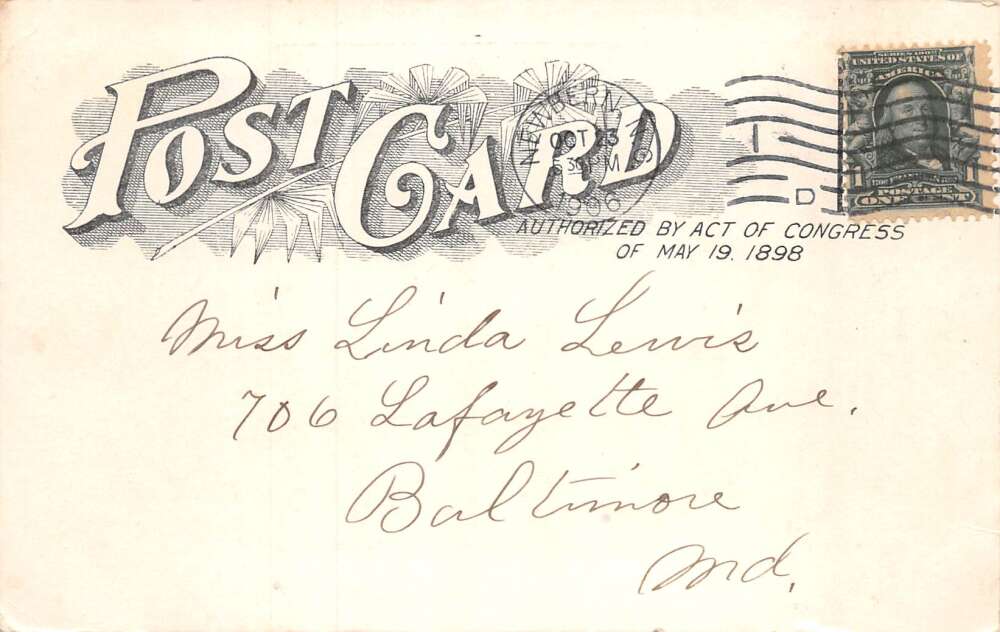 POST CARD
NEW BERN N.C.
OCT 23
530 PM
1906
D
SERIES 1902
UNITED STATES OF
AMERICA
POSTAGE
ONE CENT
AUTHORIZED BY ACT OF CONGRESS
OF MAY 19. 1898
Miss Linda Lewis
706 Lafayette Ave.
Baltimore
Md.